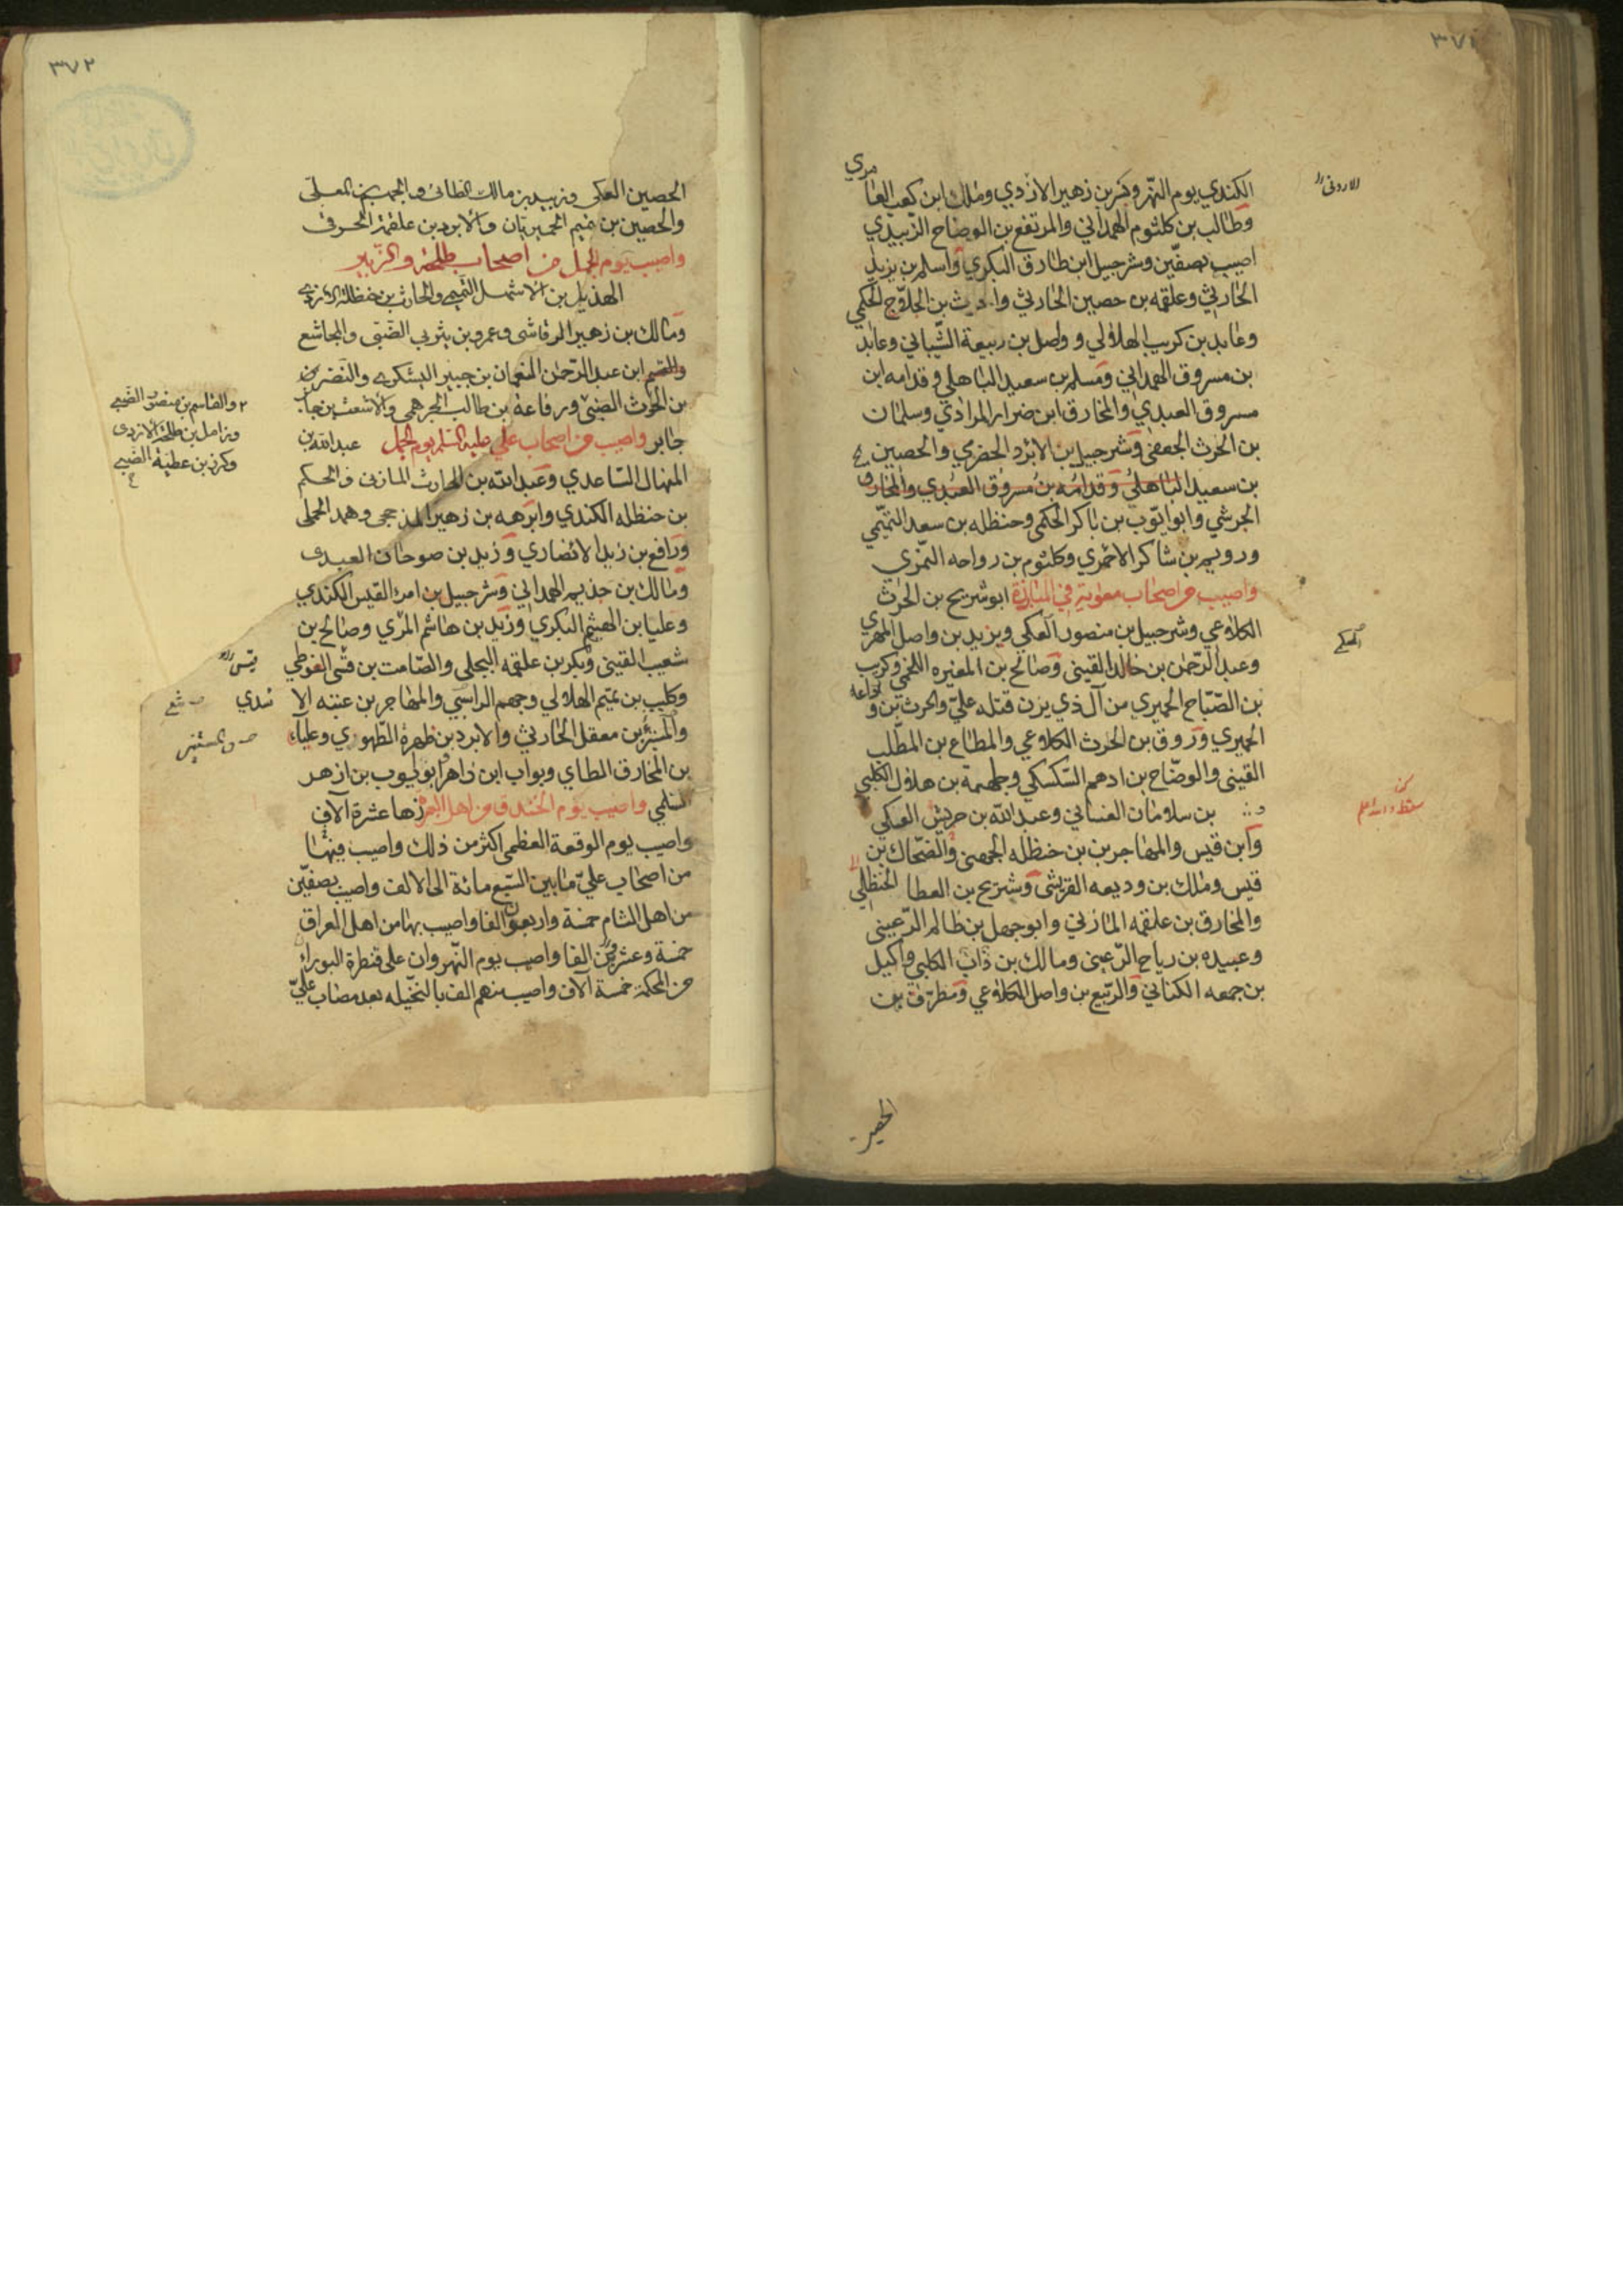 ٣٧١
الاردنى
الكندي يوم النهر وبكر بن زهير الازدي وملك ابن كعب العامري
وطالب بن كلثوم الهمداني والمرتفع بن الوضاح الزبيدي
اصيب بصفّين وشرحبيل ابن طارق البكري واسلم بن يزيد
الحارثي وعلقمه بن حصين الحارثي والحارث بن الجلاّح الحكمي
وعايد بن كريب الهلالي وواصل بن ربيعة الشيباني وعايد
بن مسروق الهمداني ومسلم بن سعيد الباهلي وقدامه ابن
مسروق العبدي والمخارق ابن ضرار المرادي وسلمان
بن الحرث الجعفى وشرحبيل بن الابرد الحضرمي والحصين
بن سعيد الباهلي وقدامه بن مسروق العبدي والمخارق
الجرشي وابو ايّوب بن باكر الحكمى وحنظله بن سعد التميّمي
ورويم بن شاكر الاحمري وكلثوم بن رواحه النمّري
واصيب من اصحاب معوية في المبارزة ابو شريح بن الحرث
الكلاعي وشرحبيل بن منصور العكي ويزيد بن واصل المهري
الحكمي
وعبد الرّحمن بن خالد القيني وصالح بن المغيره اللخمي وكريب
بن الصّبّاح الحميري من آل ذي يزن قتله عليّ والحرث بن وداعه
الحميري وروق بن الحرث الكلاعي والمطاع بن المطّلب
القيني والوضّاح بن ادهم السّكسكي وجلهمة بن هلال الكلبي
بن سلامان الغساني وعبد الله بن حريش العكي
سقط والله اعلم
وابن قيس والمهاجر بن حنظله الجهني والضحّاك بن
قيس وملك بن وديعه القريشى وشريح بن العطا الحنظلي
والمخارق بن علقمه المازني وابو جهل بن ظالم الرّعيني
وعبيده بن رياح الرّعيني ومالك بن ذات الكلبي واكيل
بن جمعه الكناني والرّبيع بن واصل الكلاعي ومطرّف بن
الحصين
٣٧٢
الحصين العكى وزبيد بن مالك الطائى والجهم بن المعلّى
والحصين بن تميم الحميريان والابرد بن علقمة الحرقى
واصيب يوم الجمل من اصحاب طلحة والزّبير
الهذيل بن الاشهل التميمي والحارث بن حنظلة الازدي
ومالك بن زهير الرقاشى وعمرو بن يثربي الضّبّى والمجاشع
والقسم ابن عبد الرّحمن النعمان بن جبير اليشكري والنضر بن
بن الحرث الضبي ورفاعة بن طالب الجرهمي والاشعث بن جابر
٢ والقاسم بن منصور الضبي
وزامل بن طلحة الازدى
وكرز بن عطية الضبي
جابر واصيب من اصحاب علي عليه السّلم يوم الجمل عبد الله بن
المنهال السّاعدي وعبد الله بن الحارث المازنى والحكم
بن حنظله الكندي وابرهه بن زهير المذحجى وهند الجملى
ورافع بن زيد الانصاري وزيد بن صوحان العبدى
ومالك بن حذيم الهمداني وشرحبيل بن امرء القيس الكندي
وعليا ابن الهيثم البكري وزيد بن هاشم المرّي وصالح بن
شعيب القيني وبكر بن علقمه البجلى والصّامت بن قنّى الغوطي
وكليب بن تميم الهلالي وجهم الراسبي والمهاجر بن عتبه الاسدي
والمستنير بن معقل الحارثي والابرد بن طهرة الطّهوري وعلياء
بن المخارق الطاي وبواب ابن زاهر وابو ايوب بن ازهر
السّلمي واصيب يوم الخندق من اهل زها عشرة آلاف
واصيب يوم الوقعة العظمى اكثر من ذلك واصيب فيها
من اصحاب عليّ ما بين السّبع مائة الى الالف واصيب بصفّين
من اهل الشام خمسة واربعون الفا واصيب بها من اهل العراق
خمسة وعشرون الفا واصيب يوم النّهروان على قنطرة البوراء
من المحكمة خمسة آلاف واصيب منهم الف بالنخيله بعد مصاب عليّ